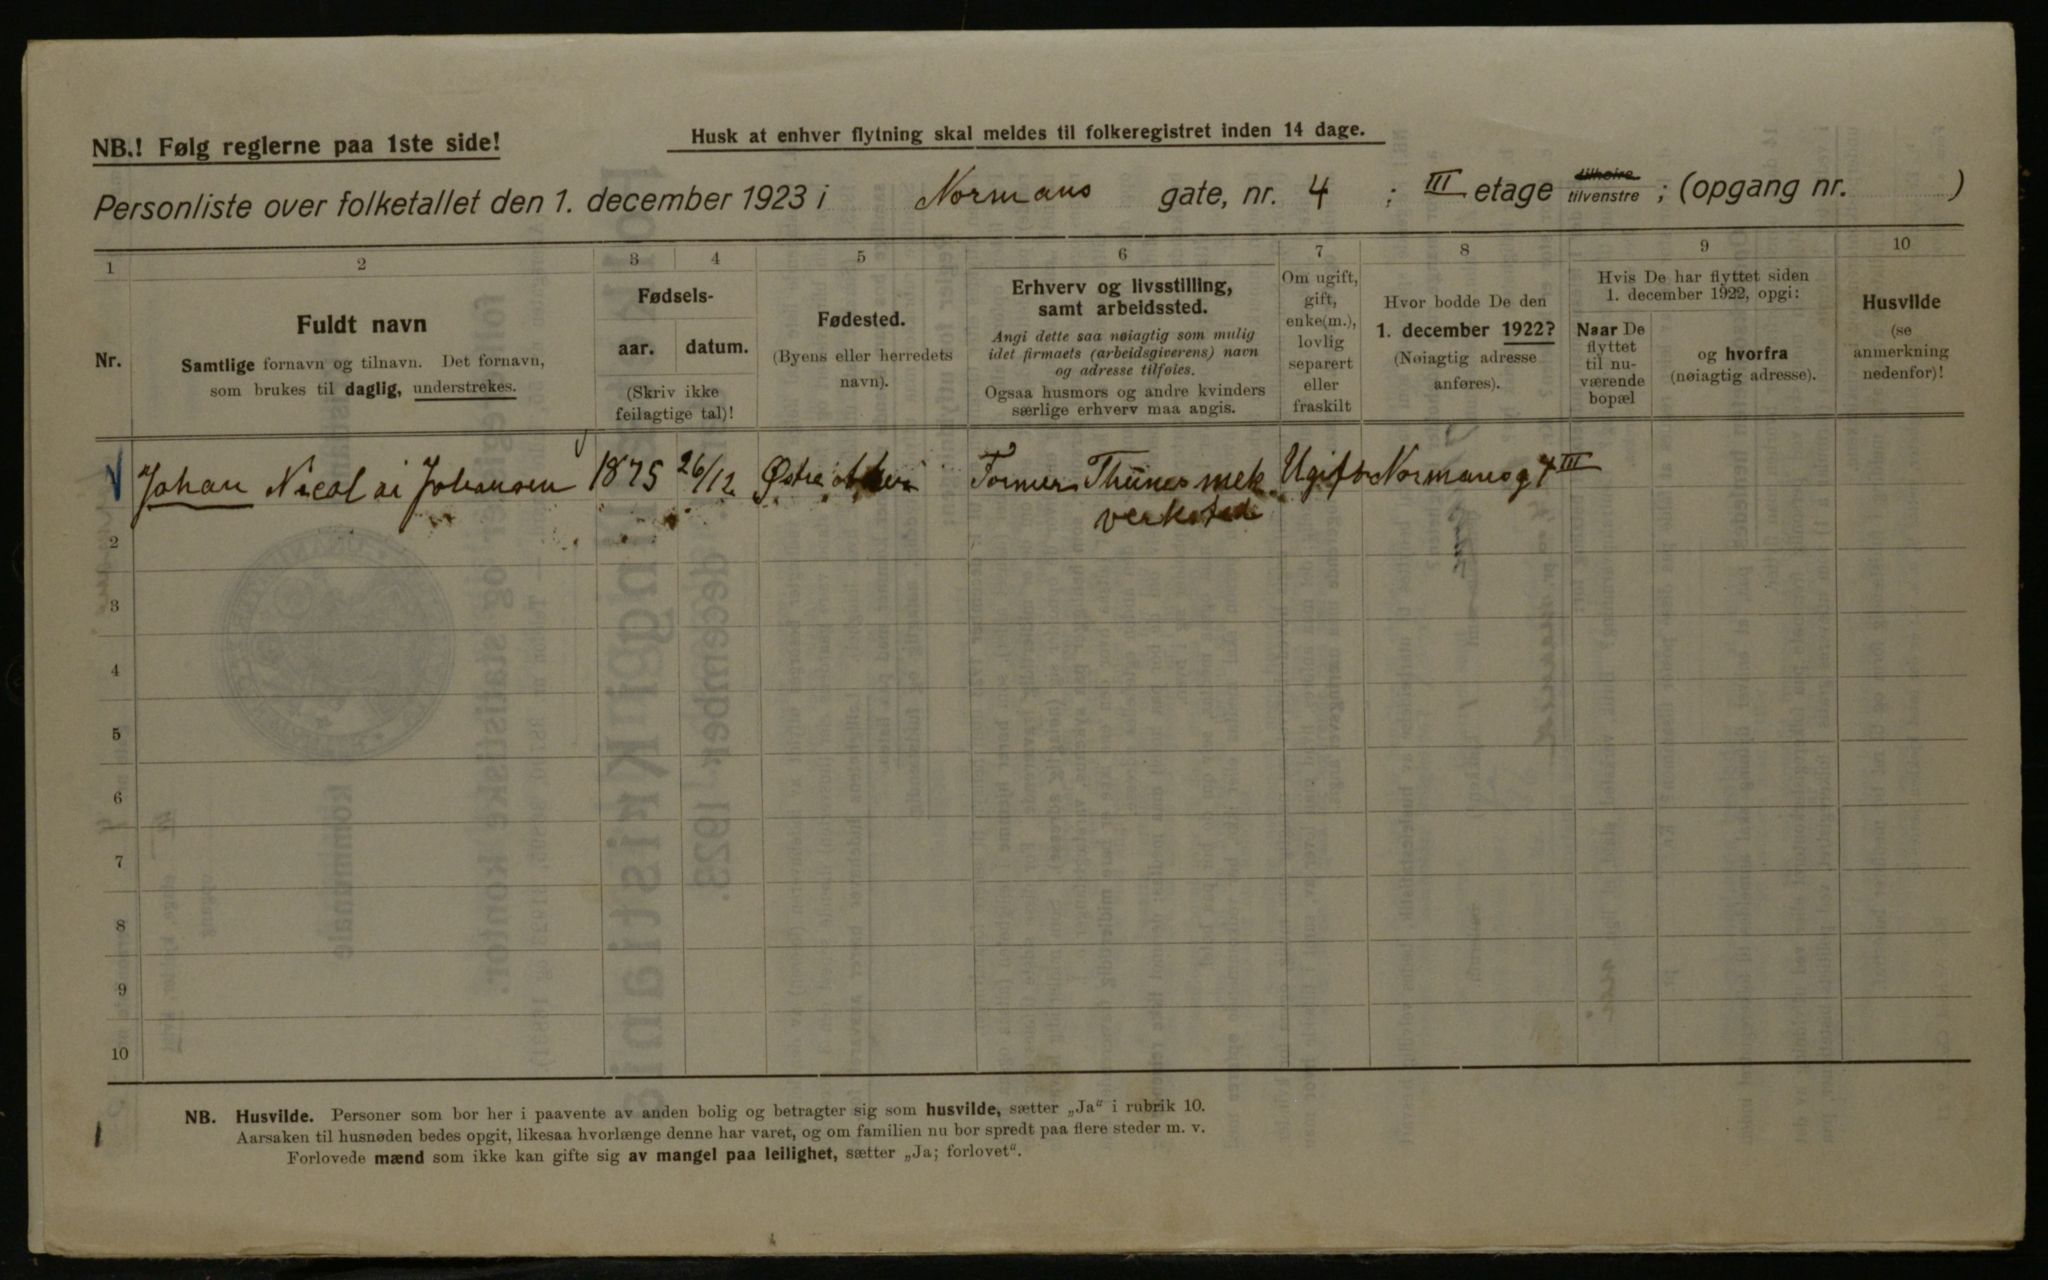 NB.! Følg reglerne paa 1ste side!
Husk at enhver flytning skal meldes til folkeregistret inden 14 dage.
Personliste over folketallet den 1. december 1923 i Normans gate, nr. 4 ; III etage tilhøire tilvenstre ; (opgang nr. )
1 2 3 4 5 6 7 8 9 10
Nr.
Fuldt navn
Samtlige fornavn og tilnavn. Det fornavn,
som brukes til daglig, understrekes.
Fødsels-
aar. datum.
(Skriv ikke
feilagtige tal)!
Fødested.
(Byens eller herredets
navn).
Erhverv og livsstilling,
samt arbeidssted.
Angi dette saa nøiagtig som mulig
idet firmaets (arbeidsgiverens) navn
og adresse tilføies.
Ogsaa husmors og andre kvinders
særlige erhverv maa angis.
Om ugift,
gift,
enke(m.),
lovlig
separert
eller
fraskilt
Hvor bodde De den
1. december 1922?
(Nøiagtig adresse
anføres).
Hvis De har flyttet siden
1. december 1922, opgi:
Naar De
flyttet
til nu-
værende
bopæl
og hvorfra
(nøiagtig adresse).
Husvilde
(se
anmerkning
nedenfor)!
Johan Nicolai Johansen 1875 26/12 Østre Former Thunes mek Ugift Normansg 4 III
verksted
2
3
4
5
6
7
8
9
10
NB. Husvilde. Personer som bor her i paavente av anden bolig og betragter sig som husvilde, sætter „Ja“ i rubrik 10.
Aarsaken til husnøden bedes opgit, likesaa hvorlænge denne har varet, og om familien nu bor spredt paa flere steder m. v.
Forlovede mænd som ikke kan gifte sig av mangel paa leilighet, sætter „Ja; forlovet“.
1